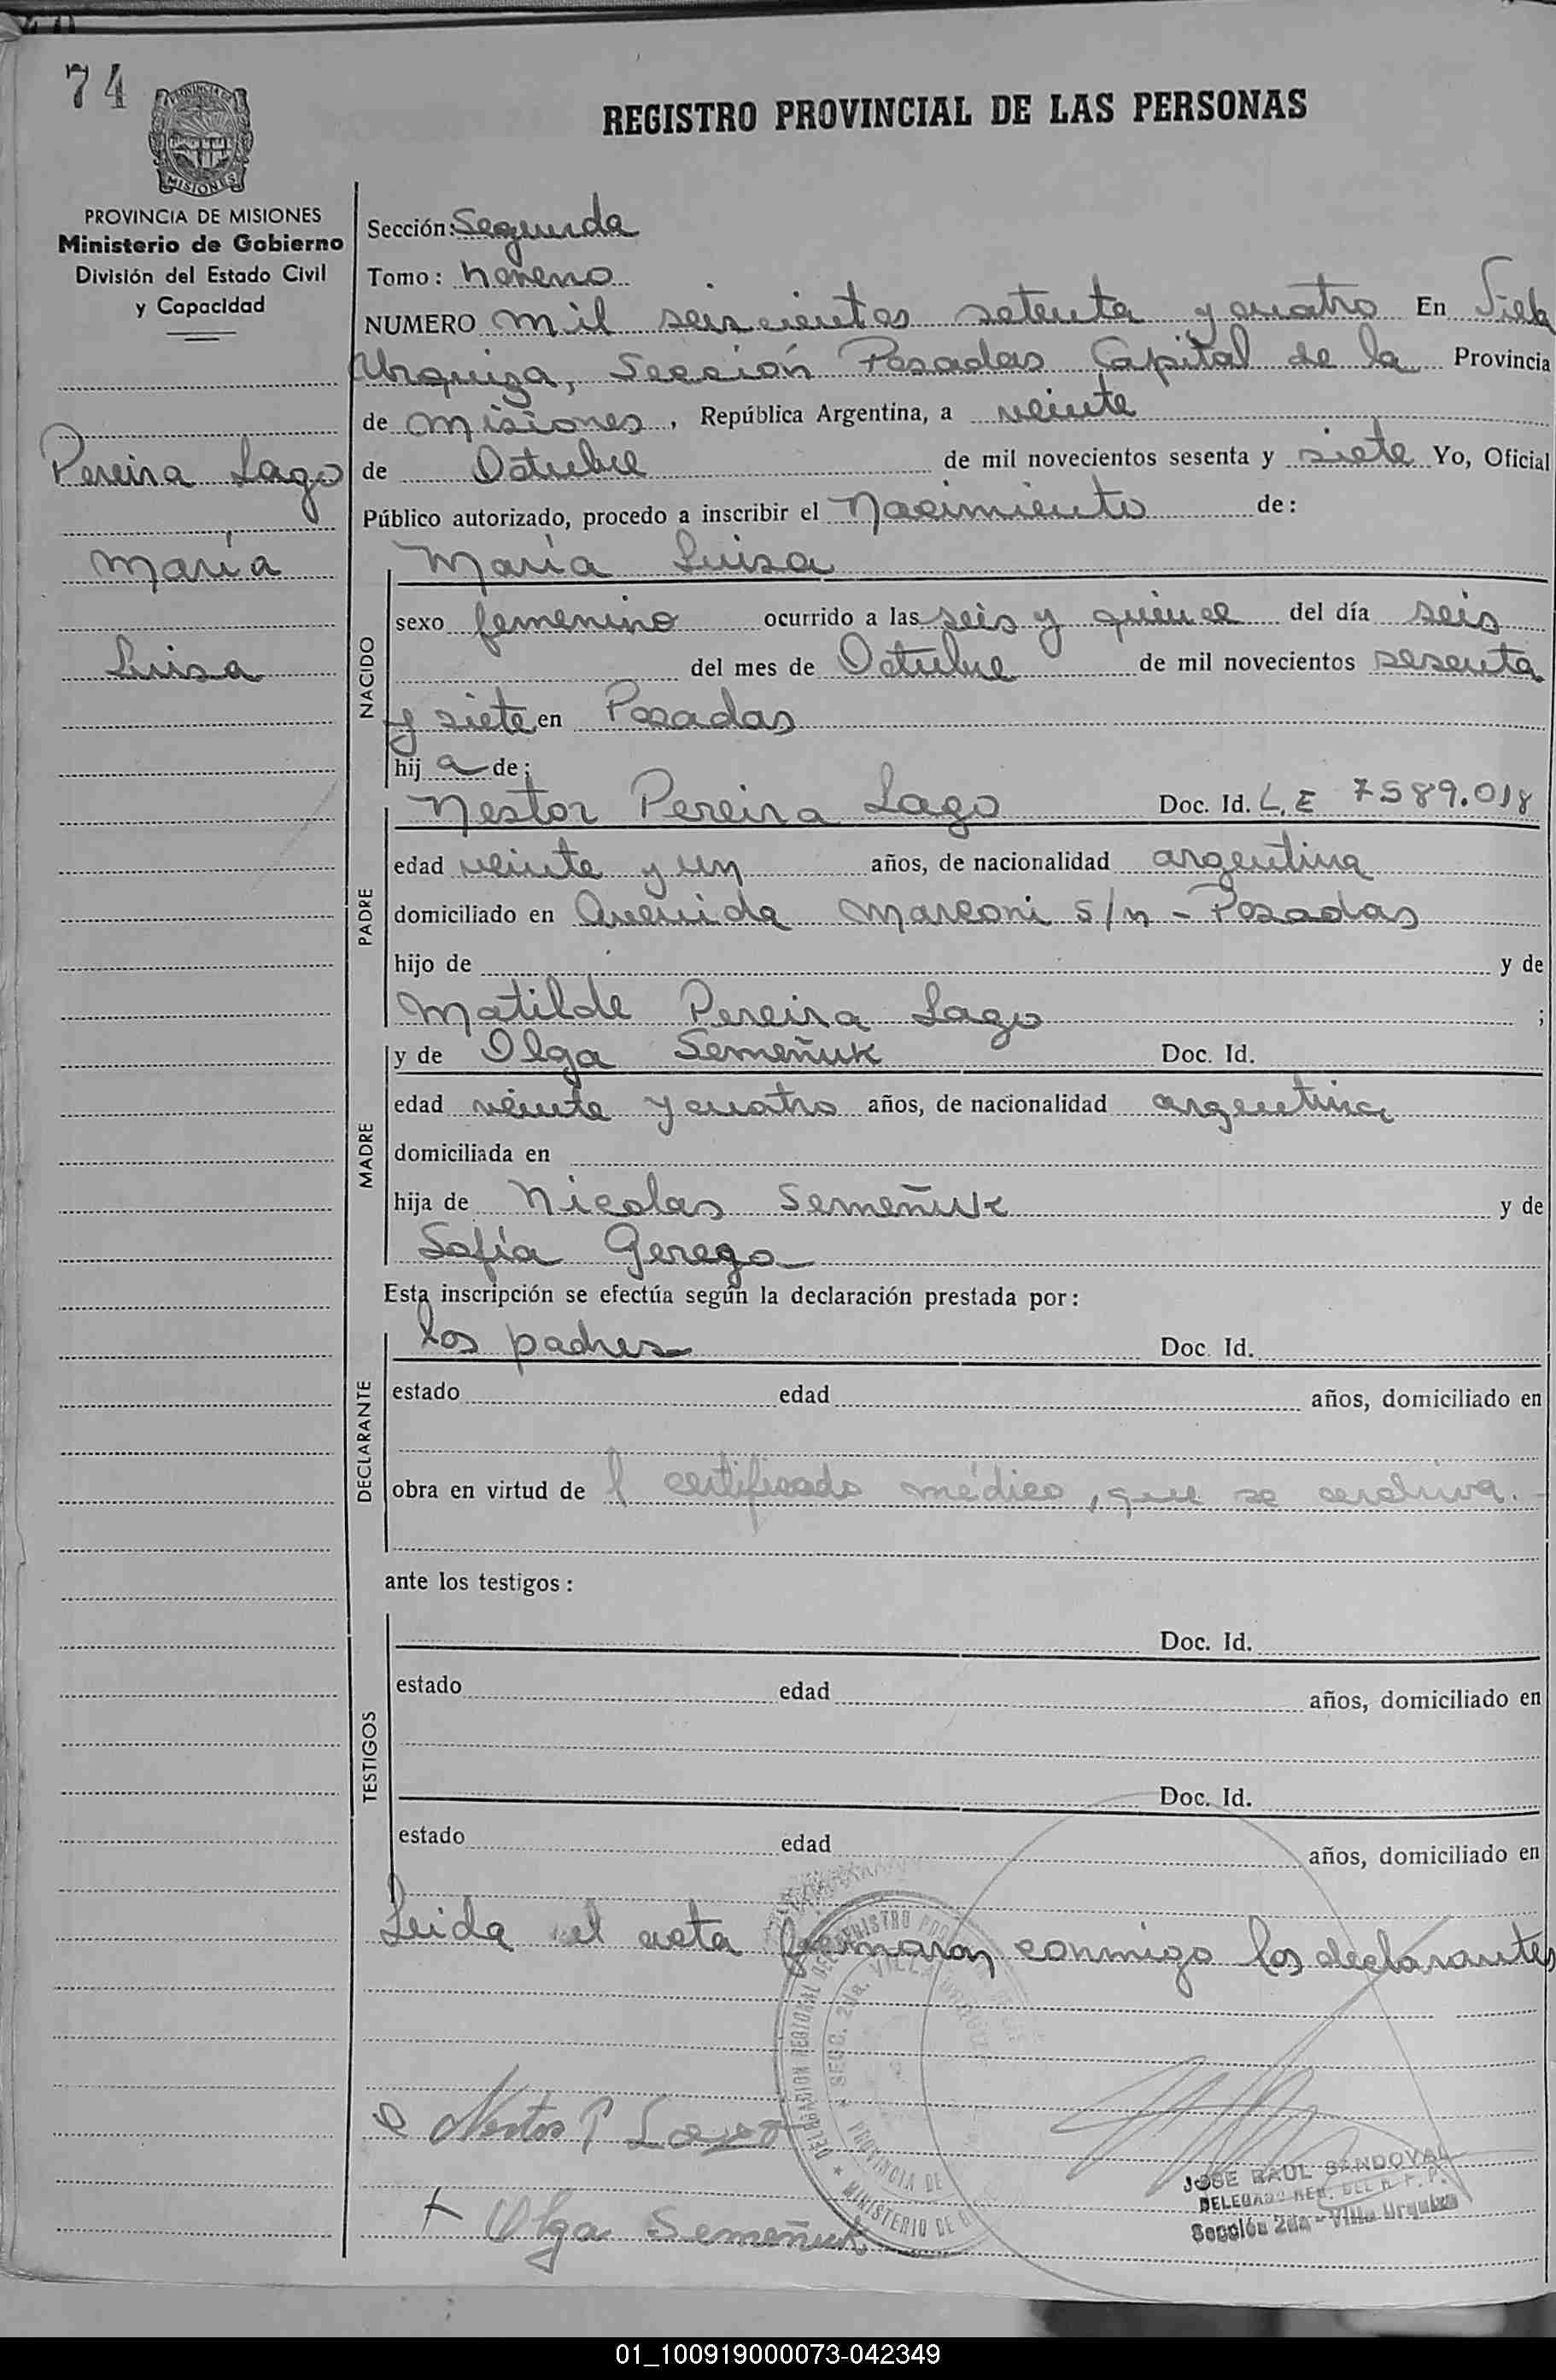 74
PROVINCIA DE MISIONES
MISIONES
REGISTRO PROVINCIAL DE LAS PERSONAS
PROVINCIA DE MISIONES
Ministerio de Gobierno
División del Estado Civil
y Capacidad
Pereira Lago
María
Luisa
Sección: Segunda
Tomo: Noveno
NUMERO mil seiscientos setenta y cuatro En Villa
Urquiza, Sección Posadas Capital de la Provincia
de Misiones, República Argentina, a veinte
de Octubre de mil novecientos sesenta y siete Yo, Oficial
Público autorizado, procedo a inscribir el Nacimiento de:
NACIDO
María Luisa
sexo femenino ocurrido a las seis y quince del día seis
del mes de Octubre de mil novecientos sesenta
y siete en Posadas
hij a de:
PADRE
Nestor Pereira Lago Doc. Id. L.E 7589.018
edad veinte y un años, de nacionalidad argentina
domiciliado en Avenida Marconi s/n - Posadas
hijo de y de
Matilde Pereira Lago ;
MADRE
y de Olga Semeñuk Doc. Id.
edad veinte y cuatro años, de nacionalidad argentina
domiciliada en
hija de Nicolas Semeñuk y de
Sofía Gerega
Esta inscripción se efectúa según la declaración prestada por:
DECLARANTE
los padres Doc. Id.
estado edad años, domiciliado en
obra en virtud de l certificado médico, que se archiva.
ante los testigos:
TESTIGOS
Doc. Id.
estado edad años, domiciliado en
Doc. Id.
estado edad años, domiciliado en
Leida el acta firmaron conmigo los declarantes
DELEGACION REGIONAL DEL REGISTRO
SECC. 2da. VILLA URQUIZA
PROVINCIA DE
MINISTERIO DE
Nestor P Lago
Olga Semeñuk
JOSE RAUL SANDOVAL
DELEGADO REG. DEL R. P. P.
Sección 2da - Villa Urquiza
01_100919000073-042349